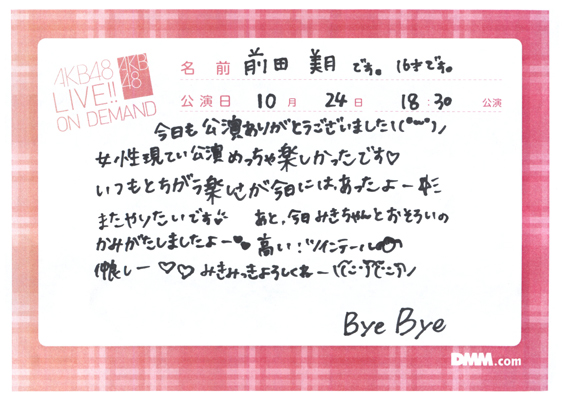 AKB48
LIVE!!
ON DEMAND
AKB
48
名前 前田 美月 です。16才です。
公演日 10月 24日 18:30 公演
今日も公演ありがとうございました!(
女性現てい公演めっちゃ楽しかったです♡
いつもとちがう楽しさが今日には、あったよー
またやりたいです
あと、今日みきちゃんとおそろいの
かみがたしましたよー♥ 高い!ツインテール
仲良しー ♡♡ みきみっきよろしくねー
Bye Bye
DMM.com